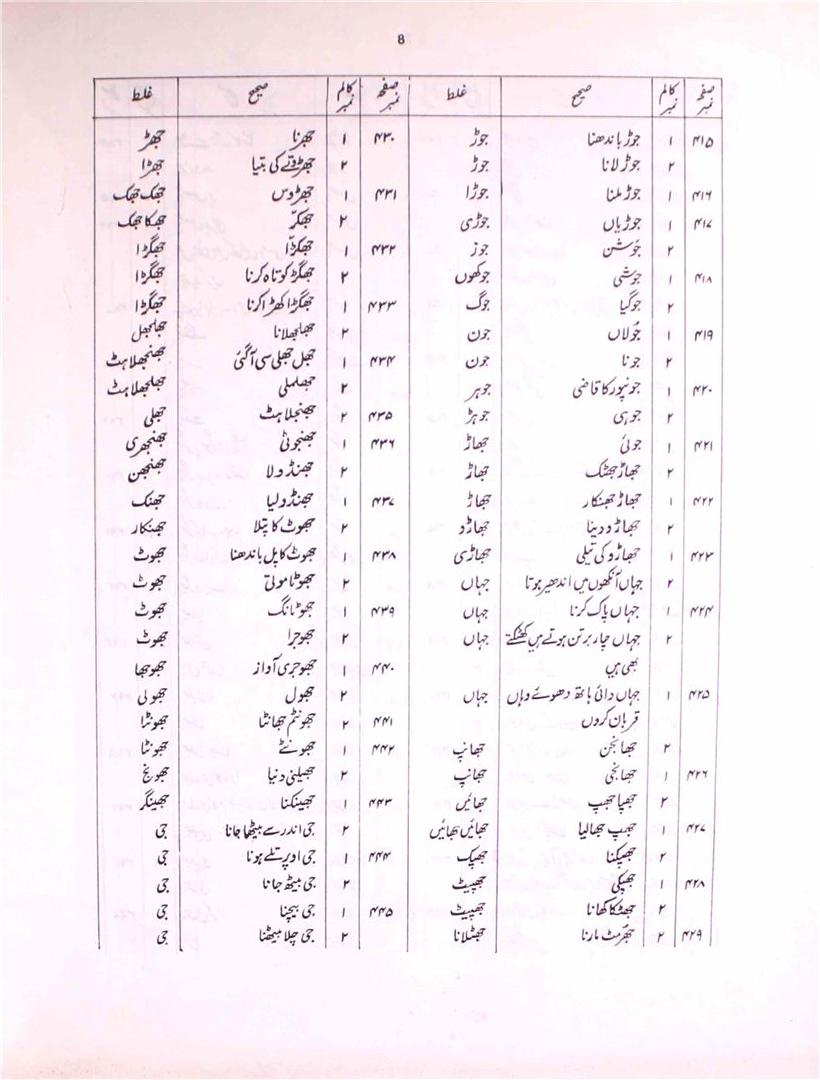 8
صفحہ نمبر کالم نمبر صحیح غلط صفحہ نمبر کالم نمبر صحیح غلط
۴۱۵ ۱ جوڑ باندھنا جوڑ ۴۳۰ ۱ جھرنا جھڑ
۲ جوڑ لانا جوڑ ۲ جھڑوتے کی بتیا جھڑا
۴۱۶ ۱ جوڑ ملنا جوڑا ۴۳۱ ۱ جھڑوس جھک جھک
۴۱۷ ۱ جوڑیاں جوڑی ۲ جھکّڑ جھکا جھک
۲ جَوشن جوز ۴۳۲ ۱ جھکڑا جھگڑا
۴۱۸ ۱ جوشی جوکھوں ۲ جھگڑ کوتاہ کرنا جھگڑا
۲ جوگیا جوگ ۴۳۳ ۱ جھگڑا کھڑا کرنا جھگڑا
۴۱۹ ۱ جَولاں جون ۲ جھلجھلانا جھلجھل
۲ جونا جون ۴۳۴ ۱ جھل جھلی سی آ گئی جھنجھلاہٹ
۴۲۰ ۱ جونپور کا قاضی جوہر ۲ جھلملی جھلجھلاہٹ
۲ جوہی جوہڑ ۴۳۵ ۲ جھنجلاہٹ جھلی
۴۲۱ ۱ جوئی جھاڑ ۴۳۶ ۱ جھنجوٹی جھنجھری
۲ جھاڑ جھٹک جھاڑ ۲ جھنڈولا جھنجھن
۴۲۲ ۱ جھاڑ جھنکار جھاڑ ۴۳۷ ۱ جھنڈولیا جھنک
۲ جھاڑو دینا جھاڑو ۲ جھوٹ کا پتلا جھنکار
۴۲۳ ۱ جھاڑو کی تیلی جھاڑی ۴۳۸ ۱ جھوٹ کا پل باندھنا جھوٹ
۲ جہاں آنکھوں میں اندھیر ہوتا جہاں ۲ جھوٹا موتی جھوٹ
۴۲۴ ۱ جہاں پاک کرنا جہاں ۴۳۹ ۱ جھوٹانگ جھوٹ
۲ جہاں چار برتن ہوتے ہیں کھٹکتے جہاں ۲ جھوجرا جھوٹ
بھی ہیں ۴۴۰ ۱ جھوجری آواز جھوجھا
۴۲۵ ۱ جہاں دائی ہاتھ دھوئے وہاں جہاں ۲ جھول جھولی
قربان کروں ۴۴۱ ۲ جھونٹم جھانٹا جھونڑا
۲ جھانجن جھانپ ۴۴۲ ۱ جھونٹے جھونٹا
۴۲۶ ۱ جھانجی جھانپ ۲ جھیلنی دنیا جھونج
۲ جھپا جھپ جھائیں ۴۴۳ ۱ جھینکنا جھینگر
۴۲۷ ۱ جھپ جھالیا جھائیں جھائیں ۲ جی اندر سے بیٹھا جانا جی
۲ جھپکنا جھپک ۴۴۴ ۱ جی اوپر تلے ہونا جی
۴۲۸ ۱ جھپکی جھپیٹ ۲ جی بیٹھ جانا جی
۲ جھٹکا کھانا جھپیٹ ۴۴۵ ۱ جی بیچنا جی
۴۲۹ ۲ جھرمٹ مارنا جھٹلانا ۲ جی جلا بیٹھنا جی